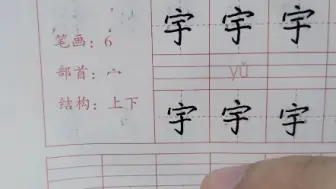 宇 宇 宇
笔画：6
部首：宀
yǔ
结构：上下
宇 宇 宇